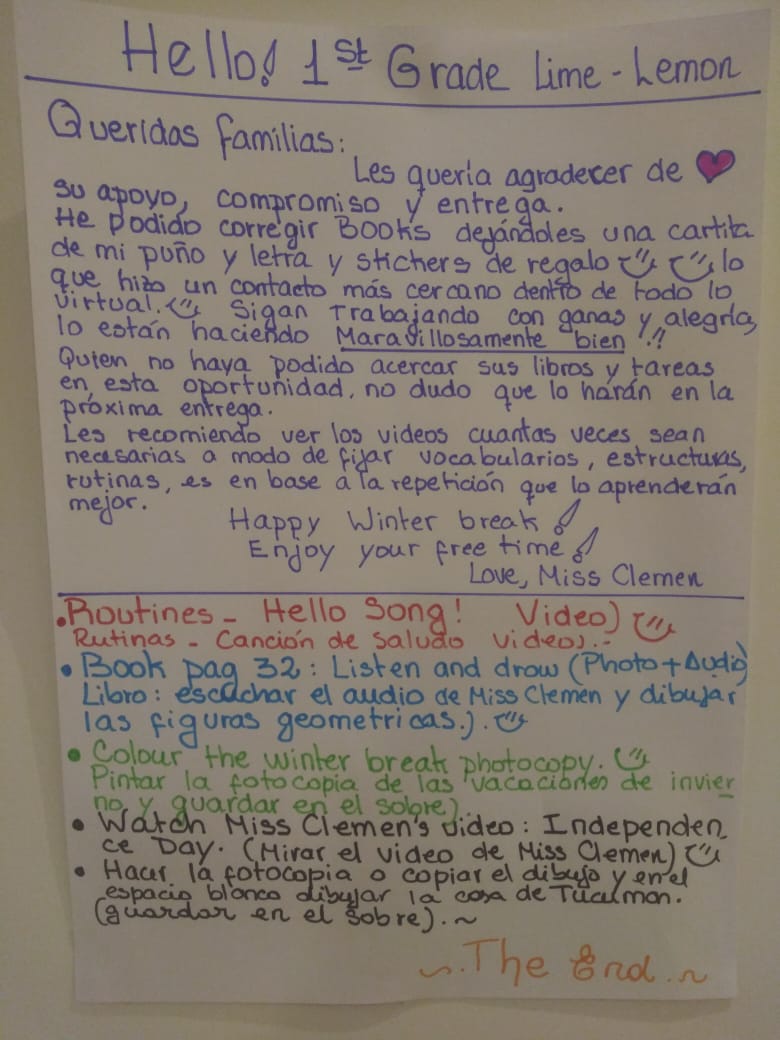 Hello! 1st Grade Lime - Lemon
Queridas familias:
Les quería agradecer de
su apoyo, compromiso y entrega.
He podido corregir Books dejándoles una cartita
de mi puño y letra y stickers de regalo lo
que hizo un contacto más cercano dentro de todo lo
virtual. Sigan Trabajando con ganas y alegría,
lo están haciendo Maravillosamente bien!!
Quien no haya podido acercar sus libros y tareas
en esta oportunidad, no dudo que lo harán en la
próxima entrega.
Les recomiendo ver los videos cuantas veces sean
necesarias a modo de fijar vocabularios, estructuras,
rutinas, es en base a la repetición que lo aprenderán
mejor.
Happy Winter break!
Enjoy your free time!
Love, Miss Clemen
• Routines - Hello Song! Video)
Rutinas - Canción de Saludo video).-
• Book pag 32: Listen and draw (Photo + Audio)
Libro: escuchar el audio de Miss Clemen y dibujar
las figuras geometricas.).
• Colour the winter break photocopy.
Pintar la fotocopia de las vacaciones de invier
no y guardar en el sobre).
• Watch Miss Clemen's video: Independen
ce Day. (Mirar el video de Miss Clemen)
• Hacer la fotocopia o copiar el dibujo y en el
espacio blanco dibujar la casa de Tucuman.
(guardar en el sobre).~
~.The End.~